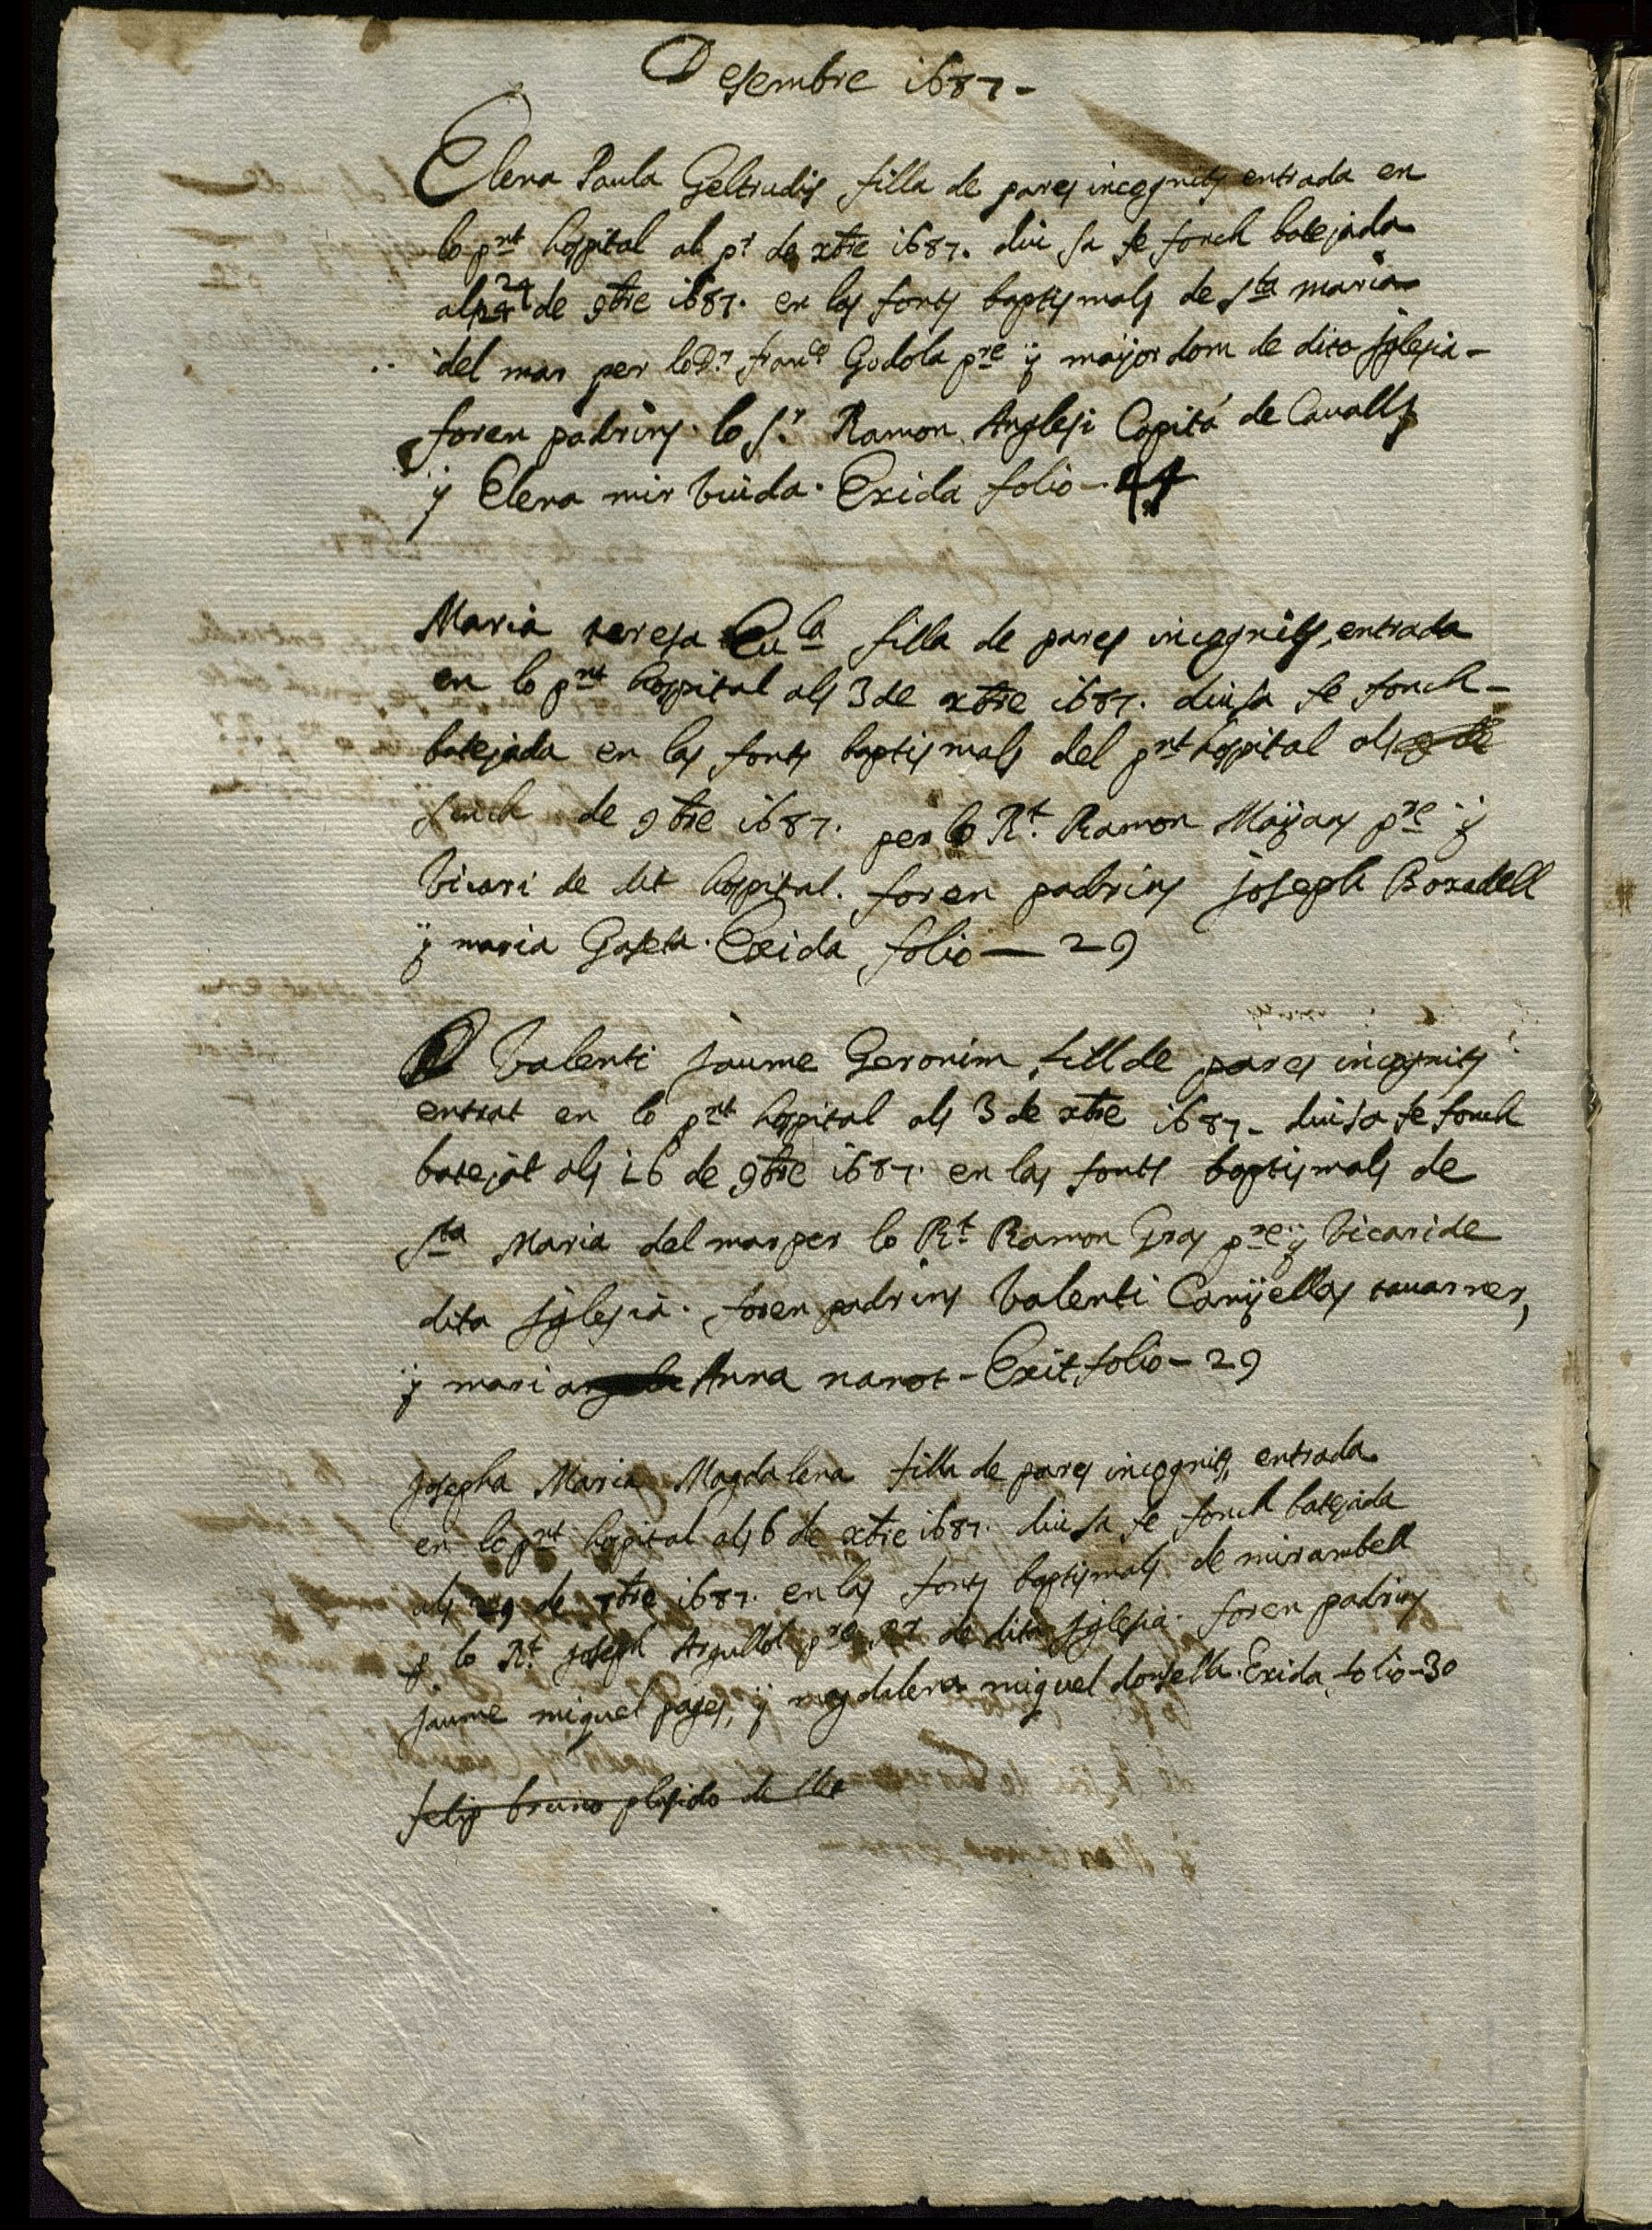 Desembre 1687-
Elena Paula Geltrudis filla de pares incognits entrada en
lo pnt hospital al pr de xbre 1687. diu sa fe fonch batejada
als 24 de 9bre 1687. en las fonts baptismals de sta maria
del mar per lo Dr. franco Godola pre ÿ maÿordom de dita jglesia-
foren padrins lo sr. Ramon Anglesi Capitá de Cavalls
ÿ Elena mir viuda. Exida folio-
Maria teresa Eula filla de pares incognits, entrada
en lo pnt hospital als 3 de xbre 1687. diu sa fe fonch-
batejada en las fonts baptismals del pnt hospital als 9 de
sinch de 9bre 1687. per lo Rt. Ramon Maÿans pre ÿ
vicari de dit hospital. foren padrins joseph Boxadell
ÿ maria Gaseta. Exida folio — 29
Valenti jaume Geronim, fill de pares incognits
entrat en lo pnt hospital als 3 de xbre 1687- diu sa fe fonch
batejat als 16 de 9bre 1687. en las fonts baptismals de
sta Maria del mar per lo Rt. Ramon Gras pre ÿ vicari de
dita jglesia. foren padrins Valenti Canÿellas tavarner,
ÿ mari Anna narot - Exit folio - 29
josepha Maria Magdalena filla de pares incognits, entrada
en lo pnt hospital als 6 de xbre 1687. diu sa fe fonch batejada
als 29 de 7bre 1687. en las fonts baptismals de mirambell
p lo Rt. joseph Argullol pre rr de dita jglesia. foren padrins
jaume miquel pages, ÿ magdalena miquel donsella. Exida folio - 30
felip bruno plasido de